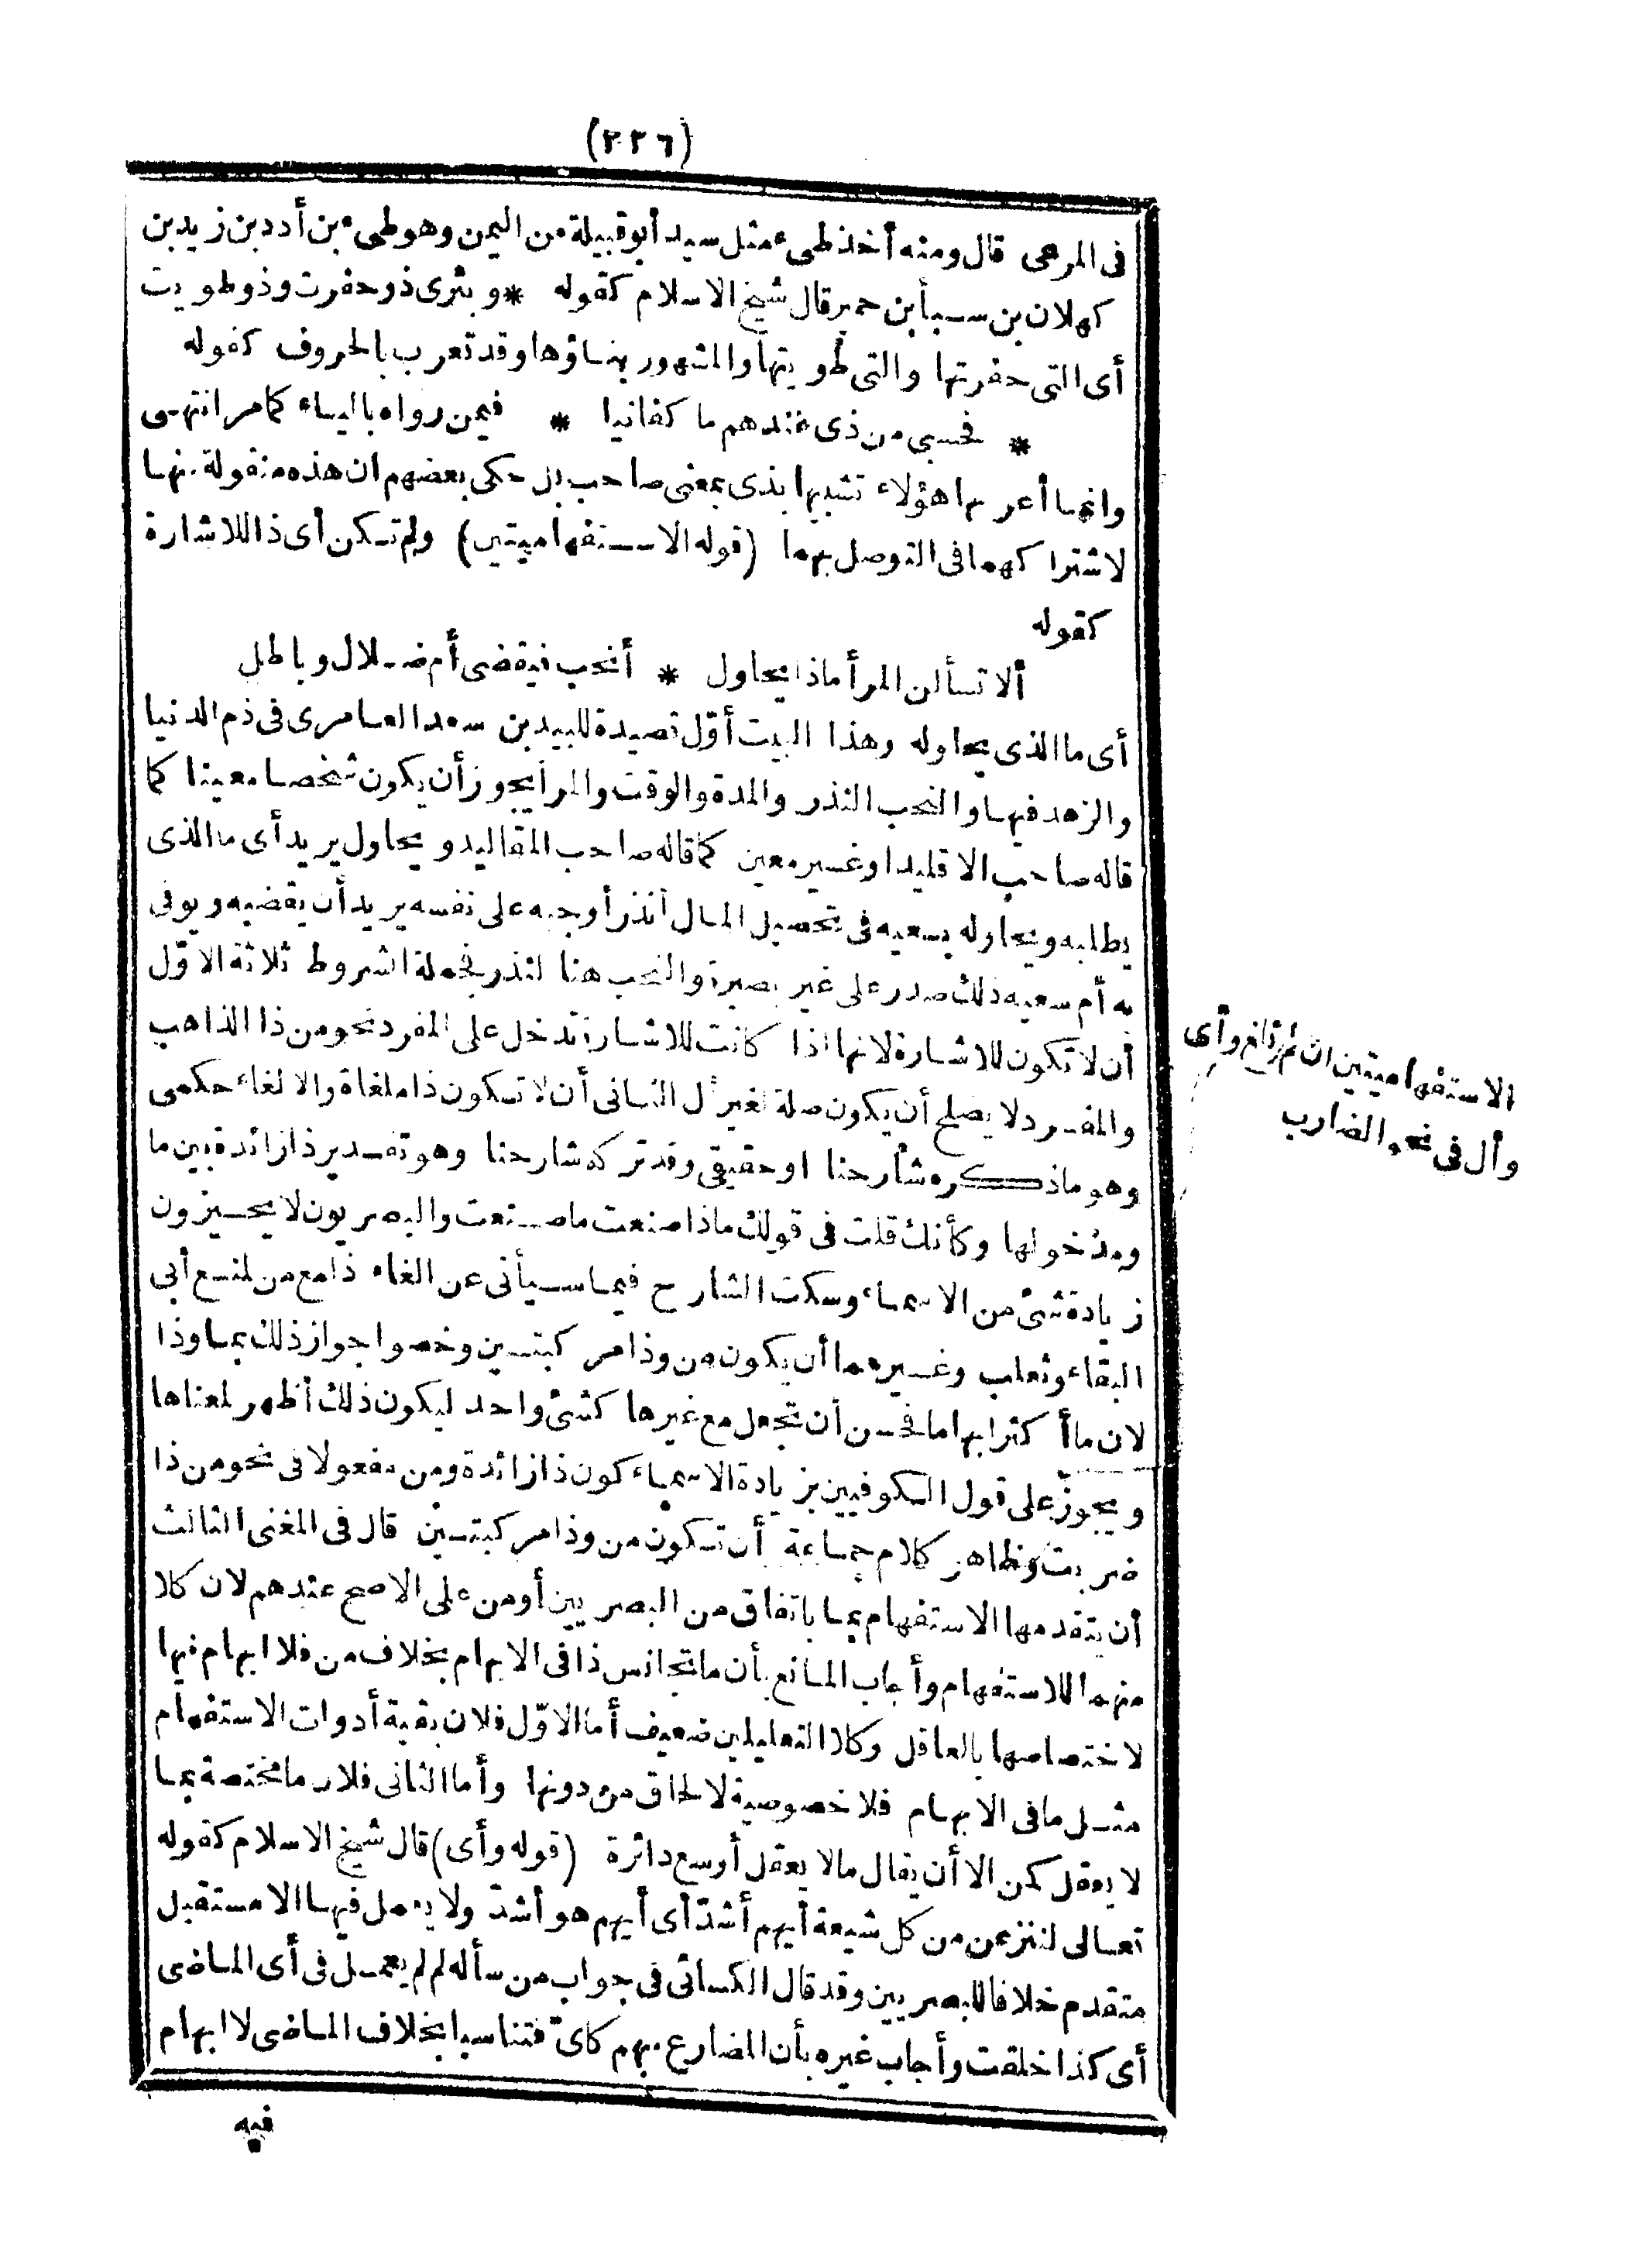 (٢٣٦)
فى المرعى قال ومنه أخذ طىء مثل سيد أبو قبيلة من اليمن وهو طىء بن أدد بن زيد بن
كهلان بن سبأ بن حمير قال شيخ الاسلام كقوله * وبئرى ذو حفرت وذو طويت
أى التى حفرتها والتى طويتها والمشهور بناؤها وقد تعرب بالحروف كقوله
* فحسبى من ذى عندهم ما كفانيا * فيمن رواه بالياء كما مر انتهى
وانما أعربها هؤلاء تشبيها بذى بمعنى صاحب بل حكى بعضهم ان هذه منقولة منها
لاشتراكهما فى التوصل بهما (قوله الاستفهاميتين) ولم تكن أى ذا للاشارة
كقوله
ألا تسألن المرأ ماذا يحاول * أنحب فيقضى أم ضلال وباطل
أى ما الذى يحاوله وهذا البيت أوّل قصيدة للبيد بن سعد العامرى فى ذم الدنيا
والزهد فيها والنحب النذر والمدة والوقت والمرأ يجوز أن يكون شخصا معينا كما
قاله صاحب الاقليد اوغير معين كما قاله صاحب المقاليد ويحاول يريد أى ما الذى
يطلبه ويحاوله بسعيه فى تحصيل المال أنذر أوجبه على نفسه يريد أن يقضيه ويوفى
به أم سعيه ذلك صدر على غير بصيرة والنحب هنا لنذر فجملة الشروط ثلاثة الاوّل
أن لا تكون للاشارة لانها اذا كانت للاشارة تدخل على المفرد نحو من ذا الذاهب
والمفرد لا يصلح أن يكون صلة لغير أل الثانى أن لا تكون ذا ملغاة والالغاء حكمى
وهو ماذكره شارحنا اوحقيقى وقد تركه شارحنا وهو تقدير ذا زائدة بين ما
ومدخولها وكأنك قلت فى قولك ماذا صنعت ما صنعت والبصريون لا يجيزون
زيادة شئ من الاسماء وسكت الشارح فيما سيأتى عن الغاء ذا مع من لمنع أبى
البقاء وثعلب وغيرهما أن يكون من وذا مركبتين وخصوا جواز ذلك بما وذا
لان ما أكثر ابهاما فحسن أن تجعل مع غيرها كشئ واحد ليكون ذلك أظهر لمعناها
ويجوز على قول الكوفيين بزيادة الاسماء كون ذا زائدة ومن مفعولا فى نحو من ذا
ضربت وظاهر كلام جماعة أن تكون من وذا مركبتين قال فى المغنى الثالث
أن يتقدمها الاستفهام بما باتفاق من البصريين أو من على الاصح عندهم لان كلا
منهما للاستفهام وأجاب المانع بأن ما تجانس ذا فى الابهام بخلاف من فلا ابهام فيها
لاختصاصها بالعاقل وكلا التعليلين ضعيف أما الاوّل فلان بقية أدوات الاستفهام
مثل ما فى الابهام فلا خصوصية لالحاق من دونها وأما الثانى فلان ما مختصة بما
لا يعقل كمن الا أن يقال مالا يعقل أوسع دائرة (قوله وأى) قال شيخ الاسلام كقوله
تعالى لننزعن من كل شيعة أيهم أشدّ أى أيهم هو أشدّ ولا يعمل فيها الا مستقبل
متقدم خلافا للبصريين وقد قال الكسائى فى جواب من سأله لم لم يعمل فى أى الماضى
أى كذا خلقت وأجاب غيره بأن المضارع مبهم كأىّ فتناسبا بخلاف الماضى لا ابهام
فيه
الاستفهاميتين ان لم تلغ وأى
وأل فى نحو الضارب